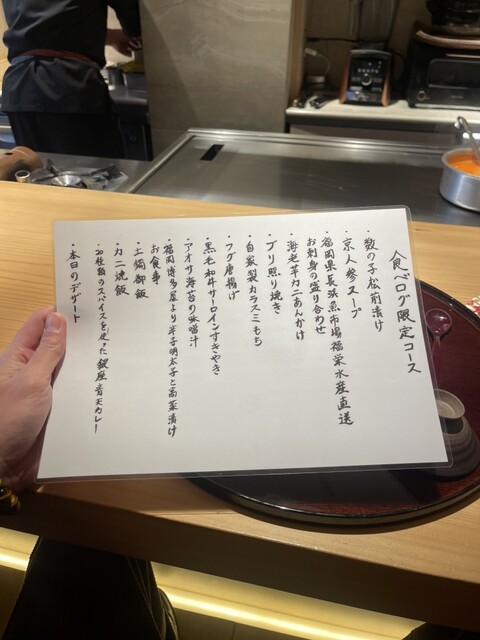 食べログ限定コース
・数の子松前漬け
・京人参スープ
・福岡県長浜魚市場福栄水産直送
お刺身の盛り合わせ
・海老芋カニあんかけ
・ブリ照り焼き
・自家製カラスミもち
・フグ唐揚げ
・黒毛和牛サーロインすきやき
・アオサ海苔の味噌汁
・福岡博多屋より辛子明太子と高菜漬け
お食事
・土鍋御飯
・カニ焼飯
・20種類のスパイスを使った銀座青天カレー
・本日のデザート